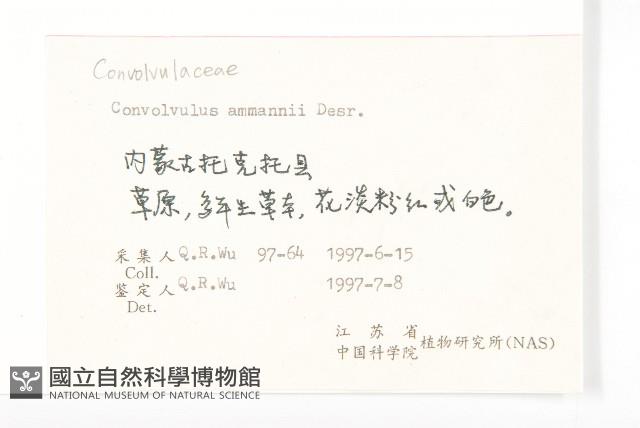 Convolvulaceae
Convolvulus ammannii Desr.
内蒙古托克托县
草原，多年生草本，花淡粉红或白色。
采集人 Q.R.Wu 97-64 1997-6-15
Coll.
鉴定人 Q.R.Wu 1997-7-8
Det.
江苏省
中国科学院 植物研究所(NAS)
國立自然科學博物館
NATIONAL MUSEUM OF NATURAL SCIENCE